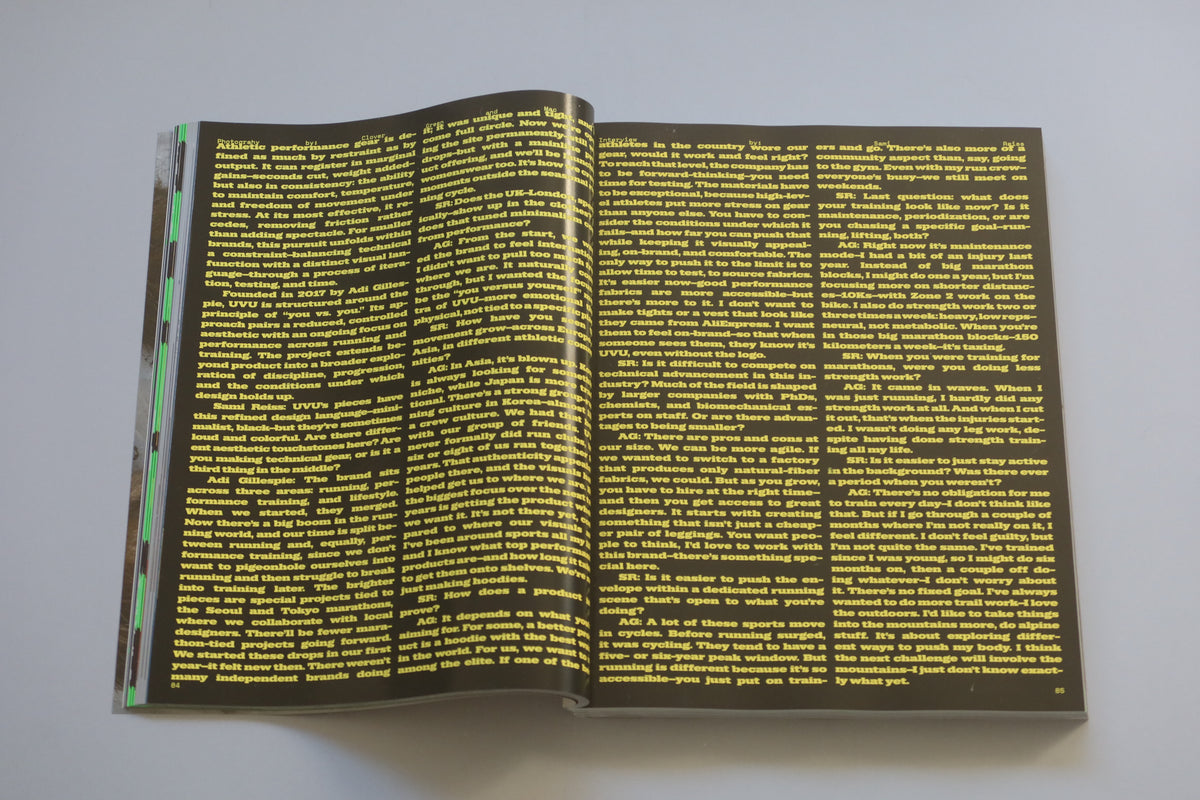 Photograhy by: Clover Green and Mac
Athletic performance gear is de-
fined as much by restraint as by
output. It can register in marginal
gains–seconds cut, weight added–
but also in consistency: the ability
to maintain comfort, temperature,
and freedom of movement under
stress. At its most effective, it re-
cedes, removing friction rather
than adding spectacle. For smaller
brands, this pursuit unfolds within
a constraint–balancing technical
function with a distinct visual lan-
guage–through a process of itera-
tion, testing, and time.
Founded in 2017 by Adi Gilles-
pie, UVU is structured around the
principle of “you vs. you.” Its ap-
proach pairs a reduced, controlled
aesthetic with an ongoing focus on
performance across running and
training. The project extends be-
yond product into a broader explo-
ration of discipline, progression,
and the conditions under which
design holds up.
Sami Reiss: UVU’s pieces have
this refined design language–mini-
malist, black–but they’re sometimes
loud and colorful. Are there differ-
ent aesthetic touchstones here? Are
you making technical gear, or is it a
third thing in the middle?
Adi Gillespie: The brand sits
across three areas: running, per-
formance training, and lifestyle.
When we started, they merged.
Now there’s a big boom in the run-
ning world, and our time is split be-
tween running and, equally, per-
formance training, since we don’t
want to pigeonhole ourselves into
running and then struggle to break
into training later. The brighter
pieces are special projects tied to
the Seoul and Tokyo marathons,
where we collaborate with local
designers. There’ll be fewer mara-
thon-tied projects going forward.
We started these drops in our first
year–it felt new then. There weren’t
many independent brands doing
it, it was unique and tight, and
come full circle. Now we’re
ing the site permanently–still
drops–but with a mainline
uct offering, and we’ll be
womenswear too. It’s how
moments outside the seasonal
ning cycle.
SR: Does the UK–London,
ically–show up in the clothes
does that tuned minimalism
from performance?
AG: From the start, we
ed the brand to feel
I didn’t want to pull too much
where we are. It naturally
through, but I wanted the
be the “you versus yourself”
tra of UVU–more emotional
physical, not tied to a specific
SR: How have you seen
movement grow–across Europe,
Asia, in different athletic
nities?
AG: In Asia, it’s blown up.
is always looking for
niche, while Japan is more
tional. There’s a strong
ning culture in Korea–almost
a crew culture. We had that
with our group of friends
never formally did run clubs,
six or eight of us ran together
years. That authenticity
people there, and the visuals
helped get us to where we
the biggest focus over the next
years is getting the product
we want it. It’s not there yet,
pared to where our visuals
I’ve been around sports all my
and I know what top
products are–and how long it
to get them onto shelves. We’re
just making hoodies.
SR: How does a product
prove?
AG: It depends on what you
aiming for. For some, a better
uct is a hoodie with the best
in the world. For us, we want
among the elite. If one of the
84
Interview by: Sami Reiss
athletes in the country wore our
gear, would it work and feel right?
To reach that level, the company has
to be forward-thinking–you need
time for testing. The materials have
to be exceptional, because high-lev-
el athletes put more stress on gear
than anyone else. You have to con-
sider the conditions under which it
fails–and how far you can push that
while keeping it visually appeal-
ing, on-brand, and comfortable. The
only way to push it to the limit is to
allow time to test, to source fabrics.
It’s easier now–good performance
fabrics are more accessible–but
there’s more to it. I don’t want to
make tights or a vest that look like
they came from AliExpress. I want
them to feel on-brand–so that when
someone sees them, they know it’s
UVU, even without the logo.
SR: Is it difficult to compete on
technical advancement in this in-
dustry? Much of the field is shaped
by larger companies with PhDs,
chemists, and biomechanical ex-
perts on staff. Or are there advan-
tages to being smaller?
AG: There are pros and cons at
our size. We can be more agile. If
we wanted to switch to a factory
that produces only natural-fiber
fabrics, we could. But as you grow,
you have to hire at the right time–
and then you get access to great
designers. It starts with creating
something that isn’t just a cheap-
er pair of leggings. You want peo-
ple to think, I’d love to work with
this brand–there’s something spe-
cial here.
SR: Is it easier to push the en-
velope within a dedicated running
scene that’s open to what you’re
doing?
AG: A lot of these sports move
in cycles. Before running surged,
it was cycling. They tend to have a
five- or six-year peak window. But
running is different because it’s so
accessible–you just put on train-
ers and go. There’s also more of a
community aspect than, say, going
to the gym. Even with my run crew–
everyone’s busy–we still meet on
weekends.
SR: Last question: what does
your training look like now? Is it
maintenance, periodization, or are
you chasing a specific goal–run-
ning, lifting, both?
AG: Right now it’s maintenance
mode–I had a bit of an injury last
year. Instead of big marathon
blocks, I might do one a year, but I’m
focusing more on shorter distanc-
es–10Ks–with Zone 2 work on the
bike. I also do strength work two or
three times a week: heavy, low reps–
neural, not metabolic. When you’re
in those big marathon blocks–150
kilometers a week–it’s taxing.
SR: When you were training for
marathons, were you doing less
strength work?
AG: It came in waves. When I
was just running, I hardly did any
strength work at all. And when I cut
it out, that’s when the injuries start-
ed. I wasn’t doing any leg work, de-
spite having done strength train-
ing all my life.
SR: Is it easier to just stay active
in the background? Was there ever
a period when you weren’t?
AG: There’s no obligation for me
to train every day–I don’t think like
that. But if I go through a couple of
months where I’m not really on it, I
feel different. I don’t feel guilty, but
I’m not quite the same. I’ve trained
since I was young, so I might do six
months on, then a couple off do-
ing whatever–I don’t worry about
it. There’s no fixed goal. I’ve always
wanted to do more trail work–I love
the outdoors. I’d like to take things
into the mountains more, do alpine
stuff. It’s about exploring differ-
ent ways to push my body. I think
the next challenge will involve the
mountains–I just don’t know exact-
ly what yet.
85